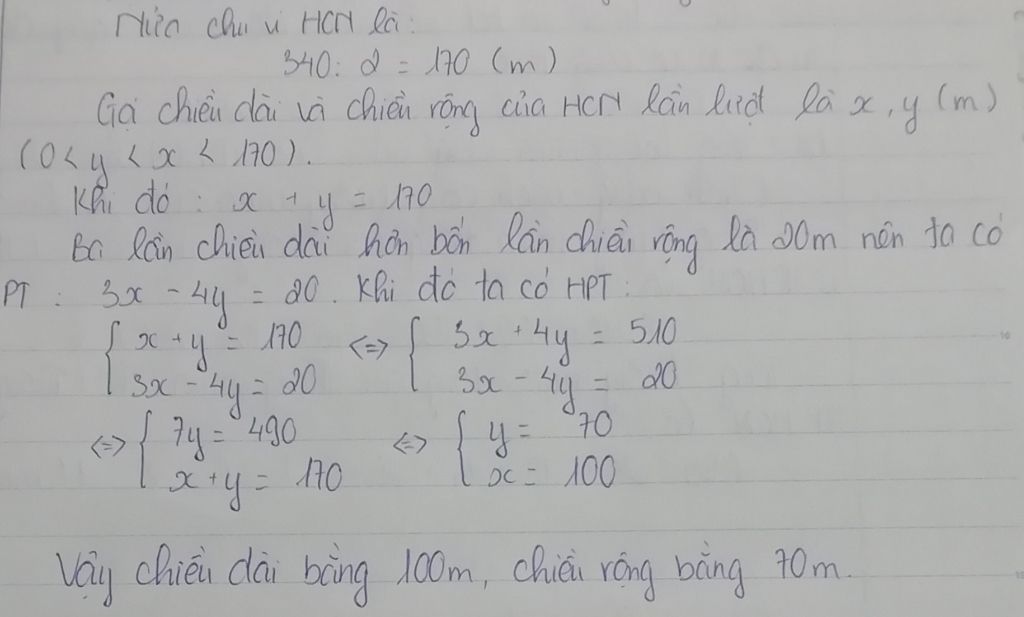 Nửa chu vi HCN là:
340: 2 = 170 (m)
Gọi chiều dài và chiều rộng của HCN lần lượt là x, y (m)
(0 < y < x < 170).
Khi đó : x + y = 170
Ba lần chiều dài hơn bốn lần chiều rộng là 20m nên ta có
PT : 3x - 4y = 20. Khi đó ta có HPT:
{ x + y = 170 <=> { 3x + 4y = 510
3x - 4y = 20 3x - 4y = 20
<=> { 7y = 490 <=> { y = 70
x + y = 170 x = 100
Vậy chiều dài bằng 100m, chiều rộng bằng 70m.